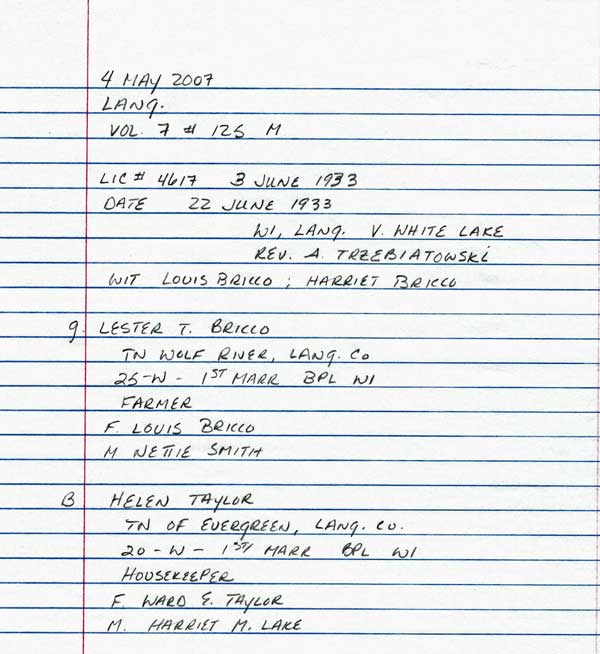 4 MAY 2007
LANG.
VOL. 7 # 125 M
LIC # 4617 3 JUNE 1933
DATE 22 JUNE 1933
WI, LANG. V. WHITE LAKE
REV. A. TRZEBIATOWSKi
WIT LOUIS BRICCO ; HARRIET BRICCO
g. LESTER T. BRICCO
TN WOLF RIVER, LANG. CO
25-W - 1ST MARR BPL WI
FARMER
F. LOUIS BRICCO
M NETTIE SMITH
B HELEN TAYLOR
TN OF EVERGREEN, LANG. CO.
20-W - 1ST MARR BPL WI
HOUSEKEEPER
F. WARD E. TAYLOR
M. HARRIET M. LAKE